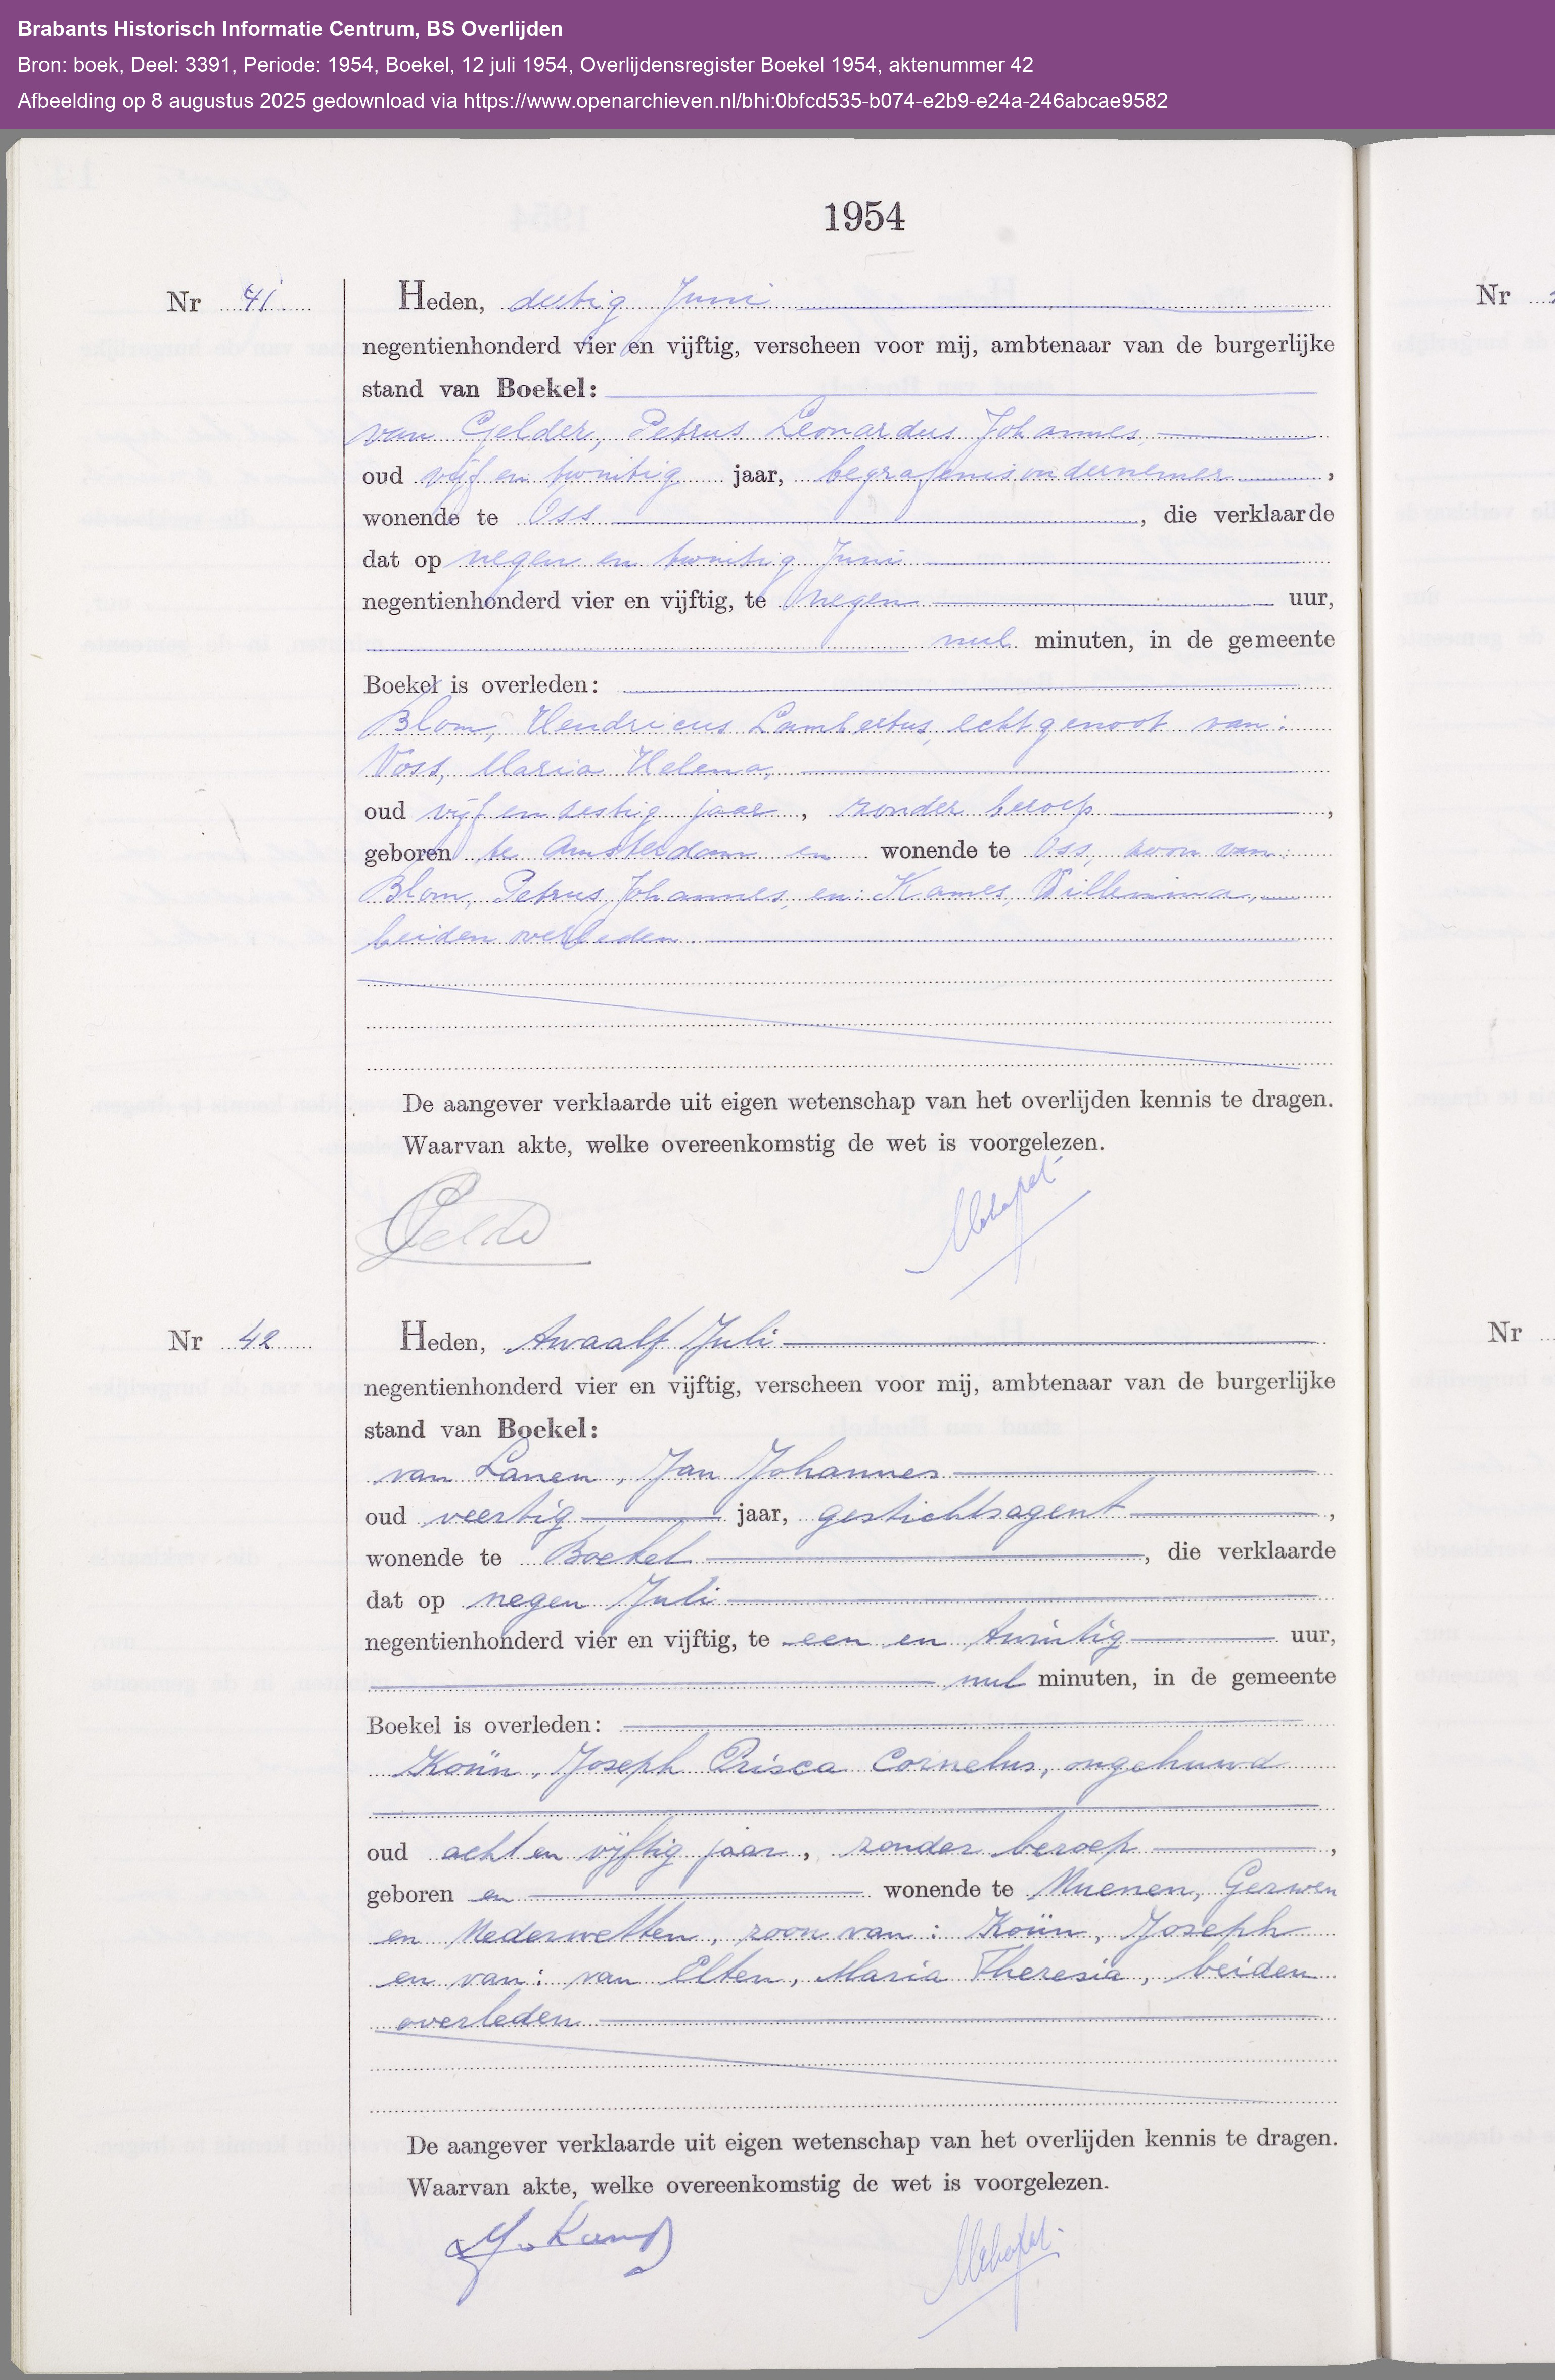 Brabants Historisch Informatie Centrum, BS Overlijden
Bron: boek, Deel: 3391, Periode: 1954, Boekel, 12 juli 1954, Overlijdensregister Boekel 1954, aktenummer 42
Afbeelding op 8 augustus 2025 gedownload via https://www.openarchieven.nl/bhi:0bfcd535-b074-e2b9-e24a-246abcae9582
1954
Nr 41. Heden, dertig Juni
negentienhonderd vier en vijftig, verscheen voor mij, ambtenaar van de burgerlijke
stand van Boekel:
van Gelder, Petrus Leonardus Johannes,
oud vijf en twintig jaar, begrafenisondernemer,
wonende te Oss, die verklaarde
dat op negen en twintig Juni
negentienhonderd vier en vijftig, te negen uur,
nul minuten, in de gemeente
Boekel is overleden:
Blom, Hendricus Lambertus, echtgenoot van:
Voss, Maria Helena,
oud vijf en zestig jaar, zonder beroep,
geboren te Amsterdam en wonende te Oss, zoon van:
Blom, Petrus Johannes, en: Kames, Willemina,
beiden overleden
De aangever verklaarde uit eigen wetenschap van het overlijden kennis te dragen.
Waarvan akte, welke overeenkomstig de wet is voorgelezen.
Nr 42 Heden, twaalf Juli
negentienhonderd vier en vijftig, verscheen voor mij, ambtenaar van de burgerlijke
stand van Boekel:
van Lanen, Jan Johannes
oud veertig jaar, gestichtsagent,
wonende te Boekel, die verklaarde
dat op negen Juli
negentienhonderd vier en vijftig, te een en twintig uur,
nul minuten, in de gemeente
Boekel is overleden:
Koün, Joseph Prisca Cornelus, ongehuwd
oud acht en vijftig jaar, zonder beroep,
geboren en wonende te Nuenen, Gerwen
en Nederwetten, zoon van: Koün, Joseph
en van: van Elten, Maria Theresia, beiden
overleden
De aangever verklaarde uit eigen wetenschap van het overlijden kennis te dragen.
Waarvan akte, welke overeenkomstig de wet is voorgelezen.
Nr
Nr